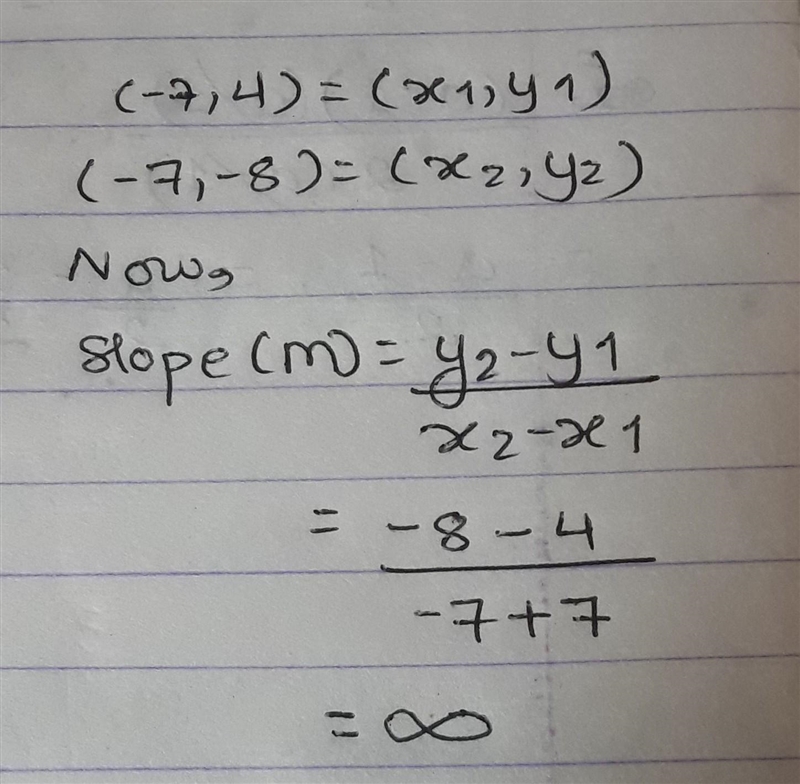 (-7,4)=(x1,y1)
(-7,-8)=(x2,y2)
Now,
Slope(m)= y2-y1
x2-x1
= -8-4
-7+7
=∞